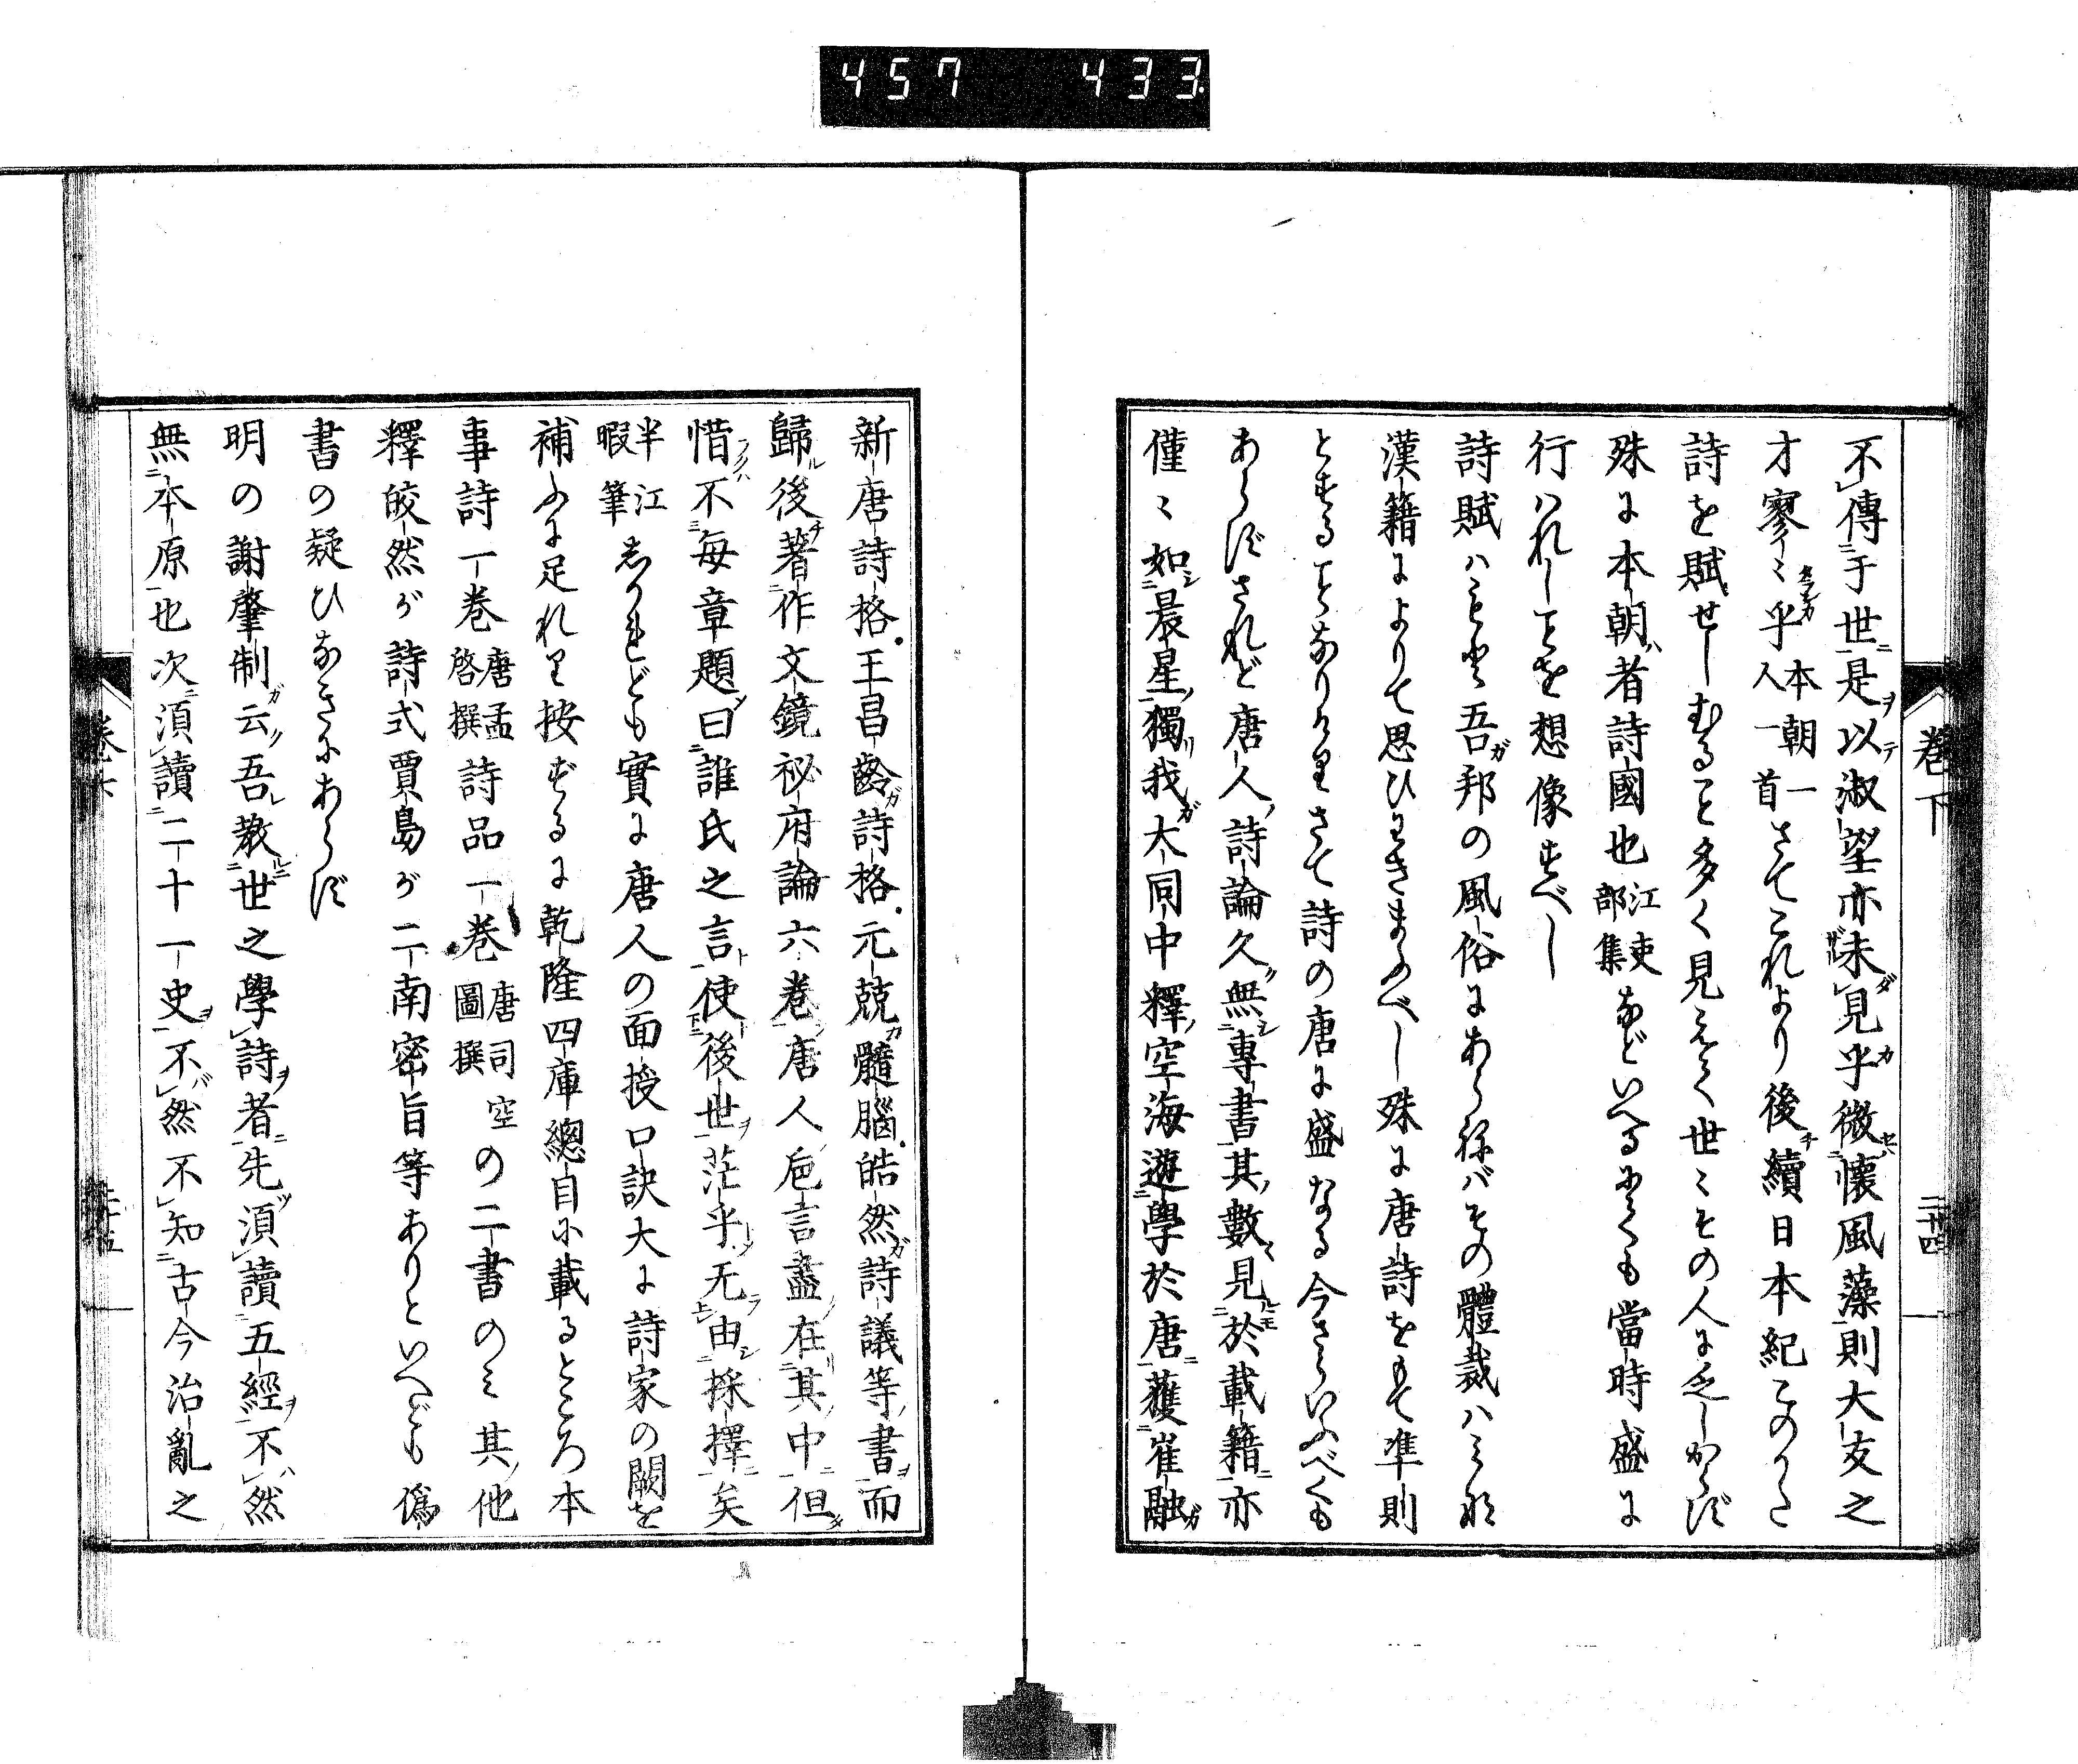 457 433
卷下
二十四
不傳于世是以淑望亦未見乎微懷風藻則大友之
才寥〻乎本朝一人一首さてこれより後續日本紀このかた
詩を賦せしむること多く見えて世〻その人に乏しからず
殊に本朝者詩國也江吏部集などいへるにても當時盛に
行ハれしことを想像すべし
詩賦ハもと吾邦の風俗にあらねバその體裁ハみな
漢籍によりて思ひわきまふべし殊に唐詩をもて準則
とすることなりけりさて詩の唐に盛なる今さらいふべくも
あらずされど唐人詩論久無專書其數見於載籍亦
僅〻如晨星獨我大同中釋空海遊學於唐獲崔融
新唐詩格王昌齡詩格元兢髓腦皎然詩議等書而
歸後著作文鏡祕府論六卷唐人卮言盡在其中但
惜不每章題曰誰氏之言使後世茫乎无由採擇矣
半江暇筆しかれども實に唐人の面授口訣大に詩家の闕を
補ふに足れり按ずるに乾隆四庫總目に載るところ本
事詩一卷唐孟啓撰詩品一卷唐司空圖撰の二書のミ其他
釋皎然が詩式賈島が二南密旨等ありといへども僞
書の疑ひなきにあらず
明の謝肇制云吾教世之學詩者先須讀五經不然
無本原也次須讀二十一史不然不知古今治亂之